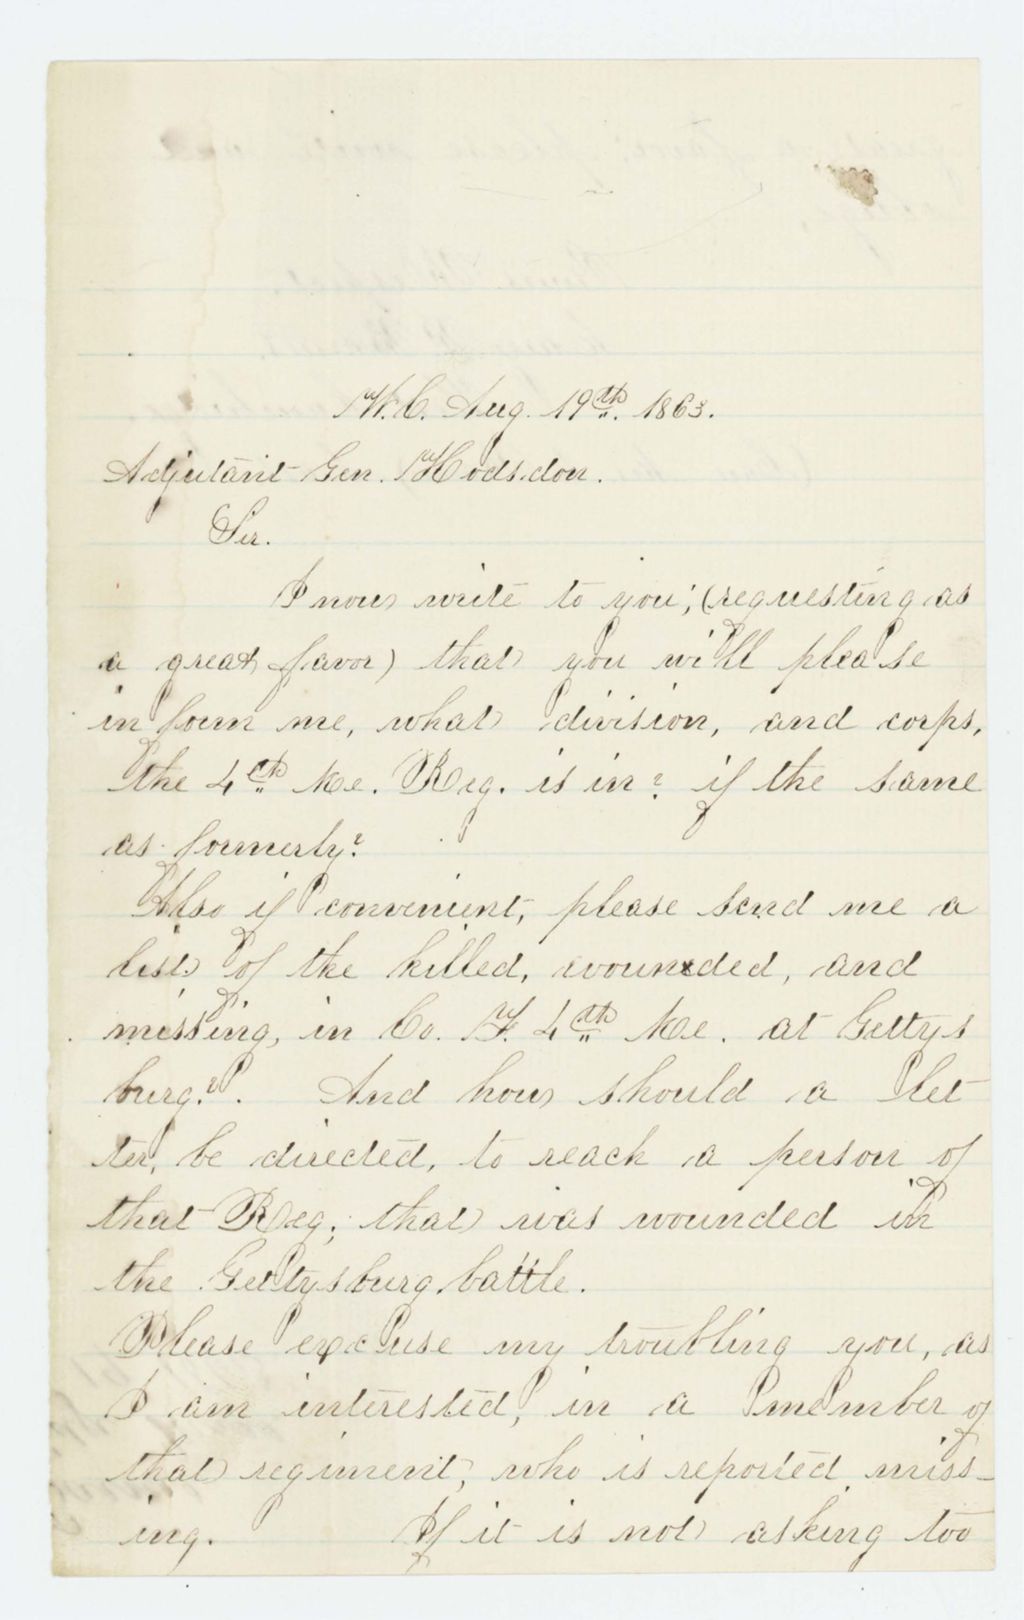 W.C. Aug. 19th. 1863.
Adjutant Gen. Hodsdon.
Sir.
I now write to you; (requesting as
a great favor) that you will please
inform me, what division, and corps,
the 4th Me. Reg. is in? if the same
as formerly?
Also if convenient, please send me a
list, of the killed, wounded, and
missing, in Co. F. 4th Me. at Gettys
burg?. And how should a let
ter, be directed, to reach a person of
that Reg; that was wounded in
the Gettysburg battle.
Please excuse my troubling you, as
I am interested, in a member of
that regiment, who is reported miss-
ing. If it is not asking too